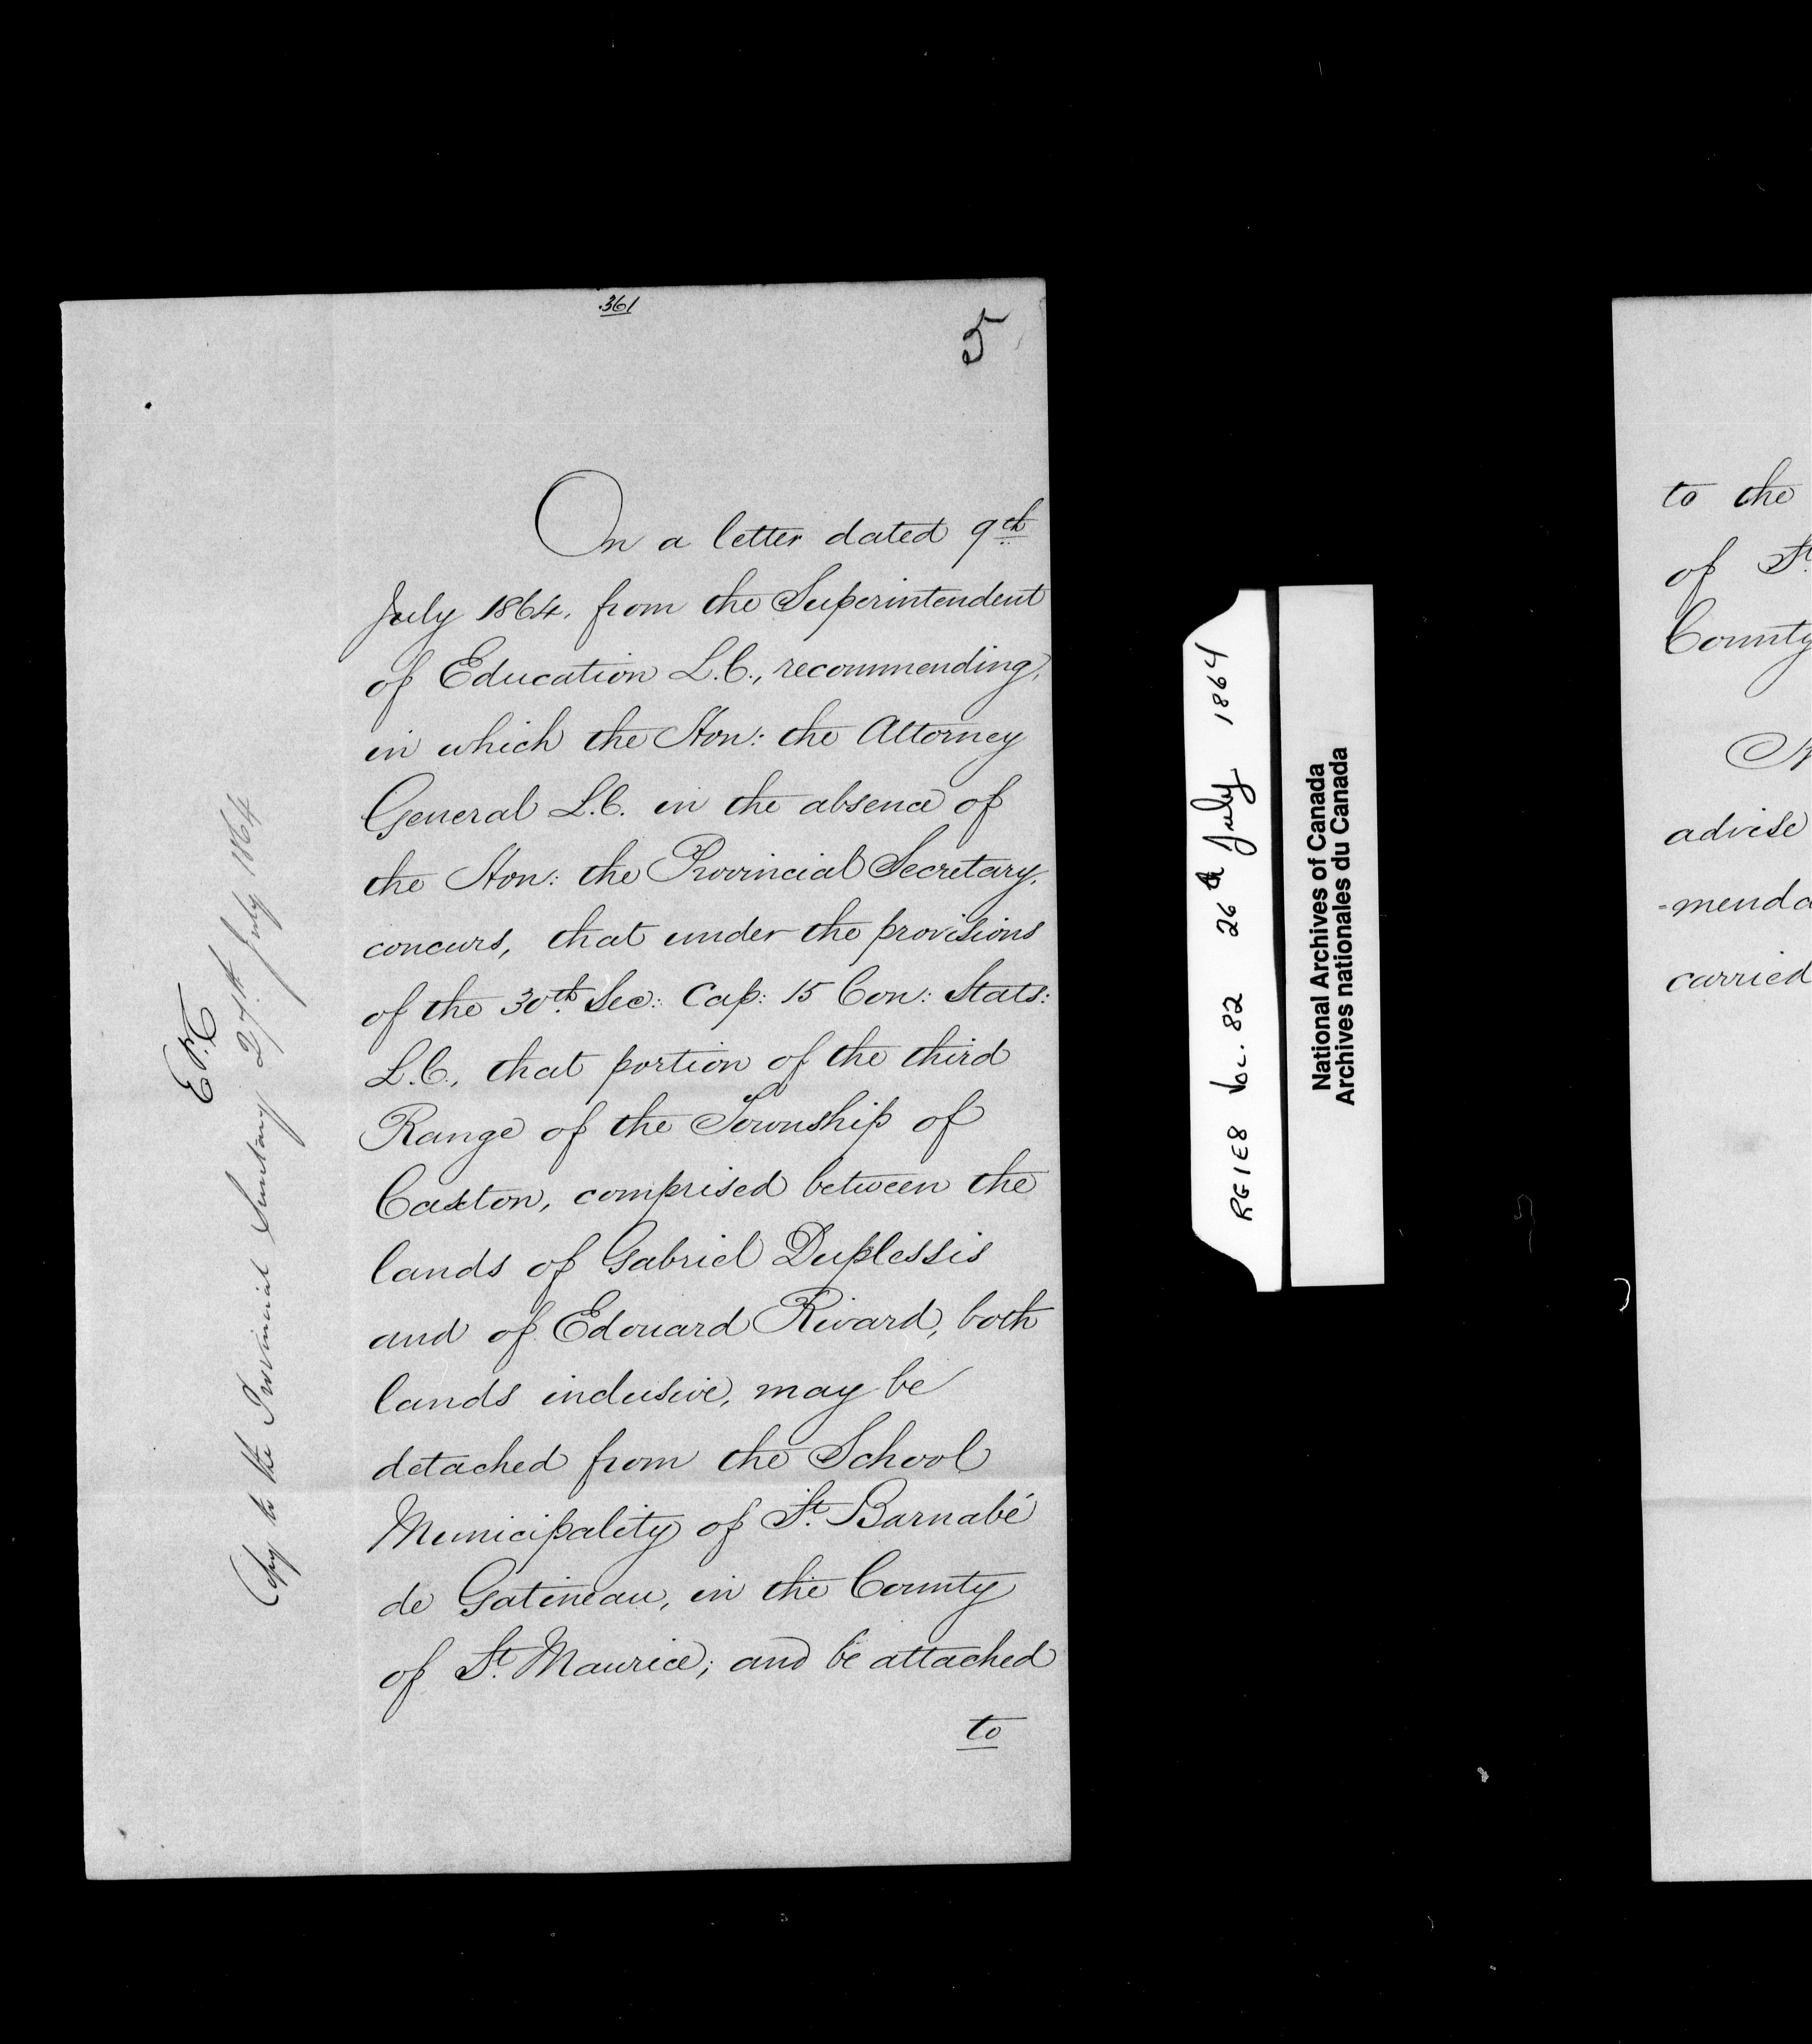 361
5
On a letter dated 9th
July 1864, from the Superintendent
of Education L.C., recommending,
in which the Hon: the Attorney
General L.C. in the absence of
the Hon: the Provincial Secretary,
concurs, that under the provisions
of the 30th Sec: Cap: 15 Con: Stats:
L.C., that portion of the third
Range of the Township of
Caxton, comprised between the
lands of Gabriel Duplessis
and of Edouard Rivard, both
lands inclusive, may be
detached from the School
Municipality of St. Barnabé
de Gatineau, in the County
of St. Maurice; and be attached
to
Copy to the Provincial Secretary 27th July 1864
RG1E8 Vol. 82 26 July 1864
National Archives of Canada
Archives nationales du Canada
to the
of St.
County
advise
=menda
carried